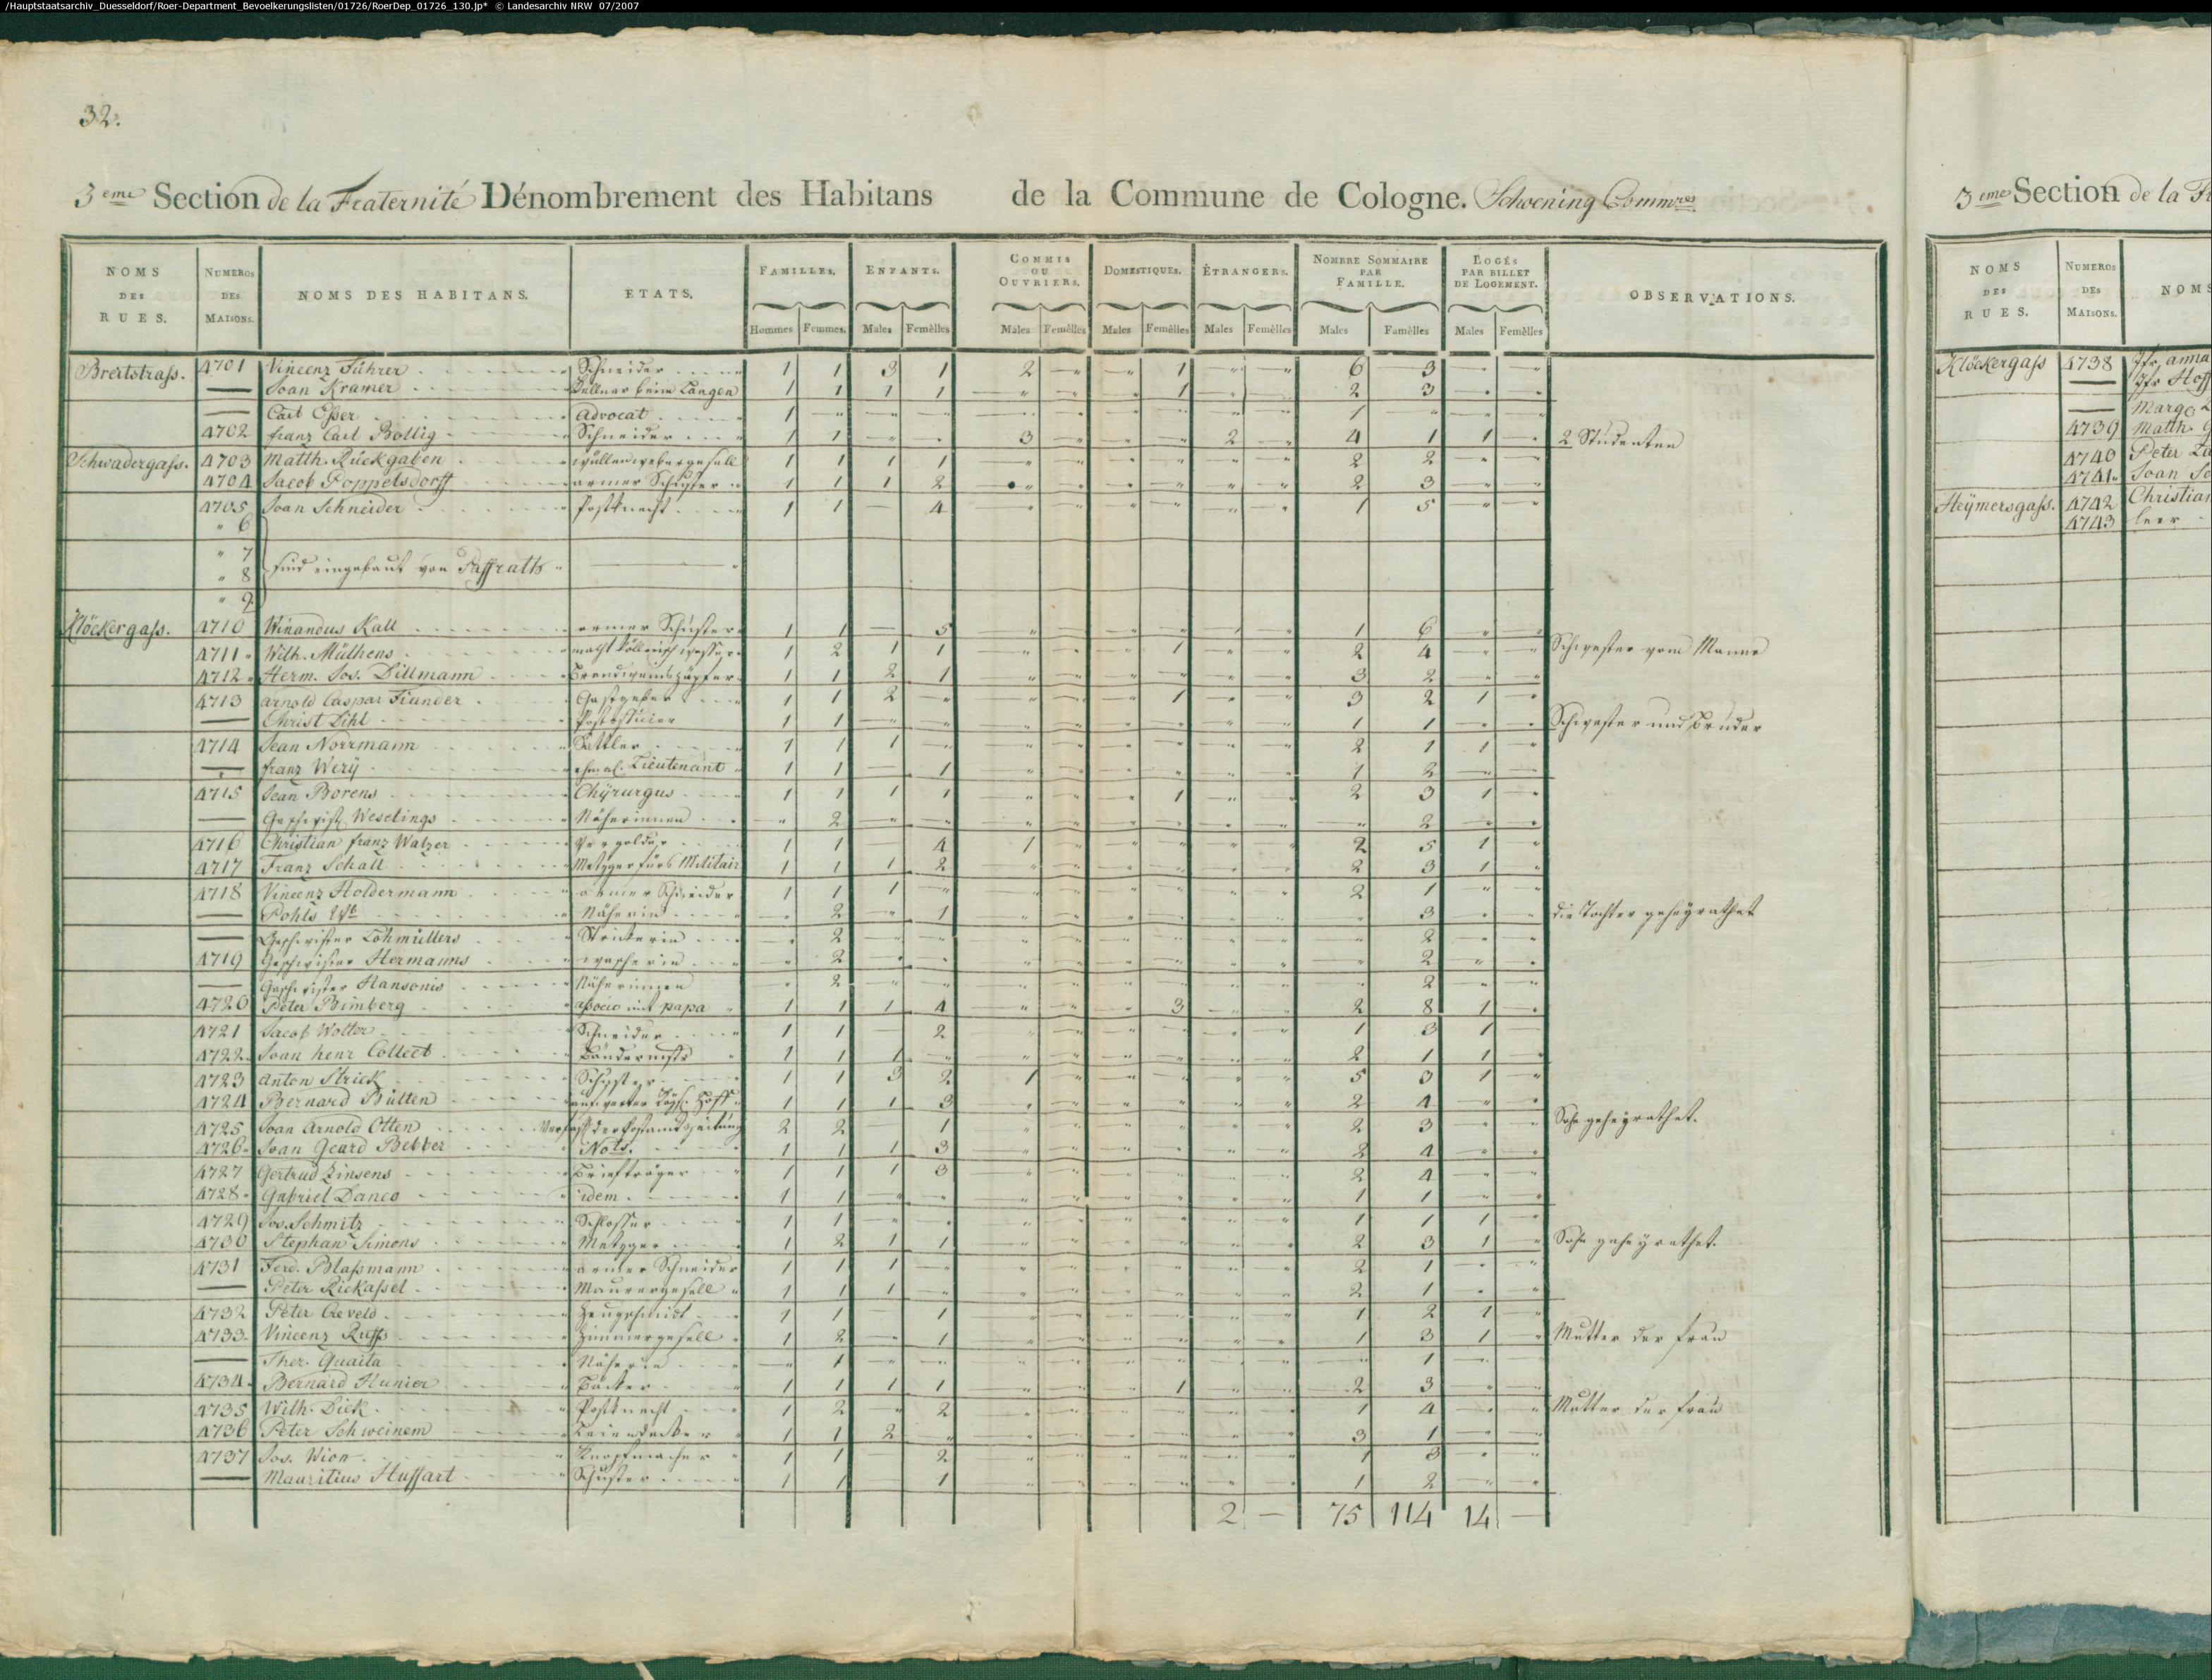 /Hauptstaatsarchiv_Duesseldorf/Roer-Department_Bevoelkerungslisten/01726/RoerDep_01726_130.jp* © Landesarchiv NRW 07/2007
32.
3eme Section de la Fraternité Dénombrement des Habitans de la Commune de Cologne. Schoening Commres
NOMS DES RUES. NUMEROS DES MAISONS. NOMS DES HABITANS. ETATS. FAMILLES. Hommes Femmes. ENFANTS. Males Femèlles COMMIS OU OUVRIERS. Males Femèlles DOMESTIQUES. Males Femèlles ÉTRANGERS. Males Femèlles NOMBRE SOMMAIRE PAR FAMILLE. Males Famèlles LOGÉS PAR BILLET DE LOGEMENT. Males Femèlles OBSERVATIONS.
Breitstrass. 4701 Vincenz Führer Schneider 1 1 3 1 2 - - 1 - - 6 3 - -
— Joan Kramer Kellner beim Langen 1 1 1 1 - - - 1 - - 2 3 - -
— Carl Esser advocat 1 - - - - - - - - - 1 - - -
4702 franz Carl Bollig Schneider 1 1 - - 3 - - - 2 - 4 1 1 - 2 Studenten
Schwadergass. 4703 Matth. Rückgaben wullenwebergesell 1 1 1 1 - - - - - - 2 2 - -
4704 Jacob Poppelsdorff armer Schuster 1 1 1 2 - - - - - - 2 3 - -
4705 Joan Schneider Postknecht 1 1 - 4 - - - - - - 1 5 - -
" 6
" 7
" 8 sind eingebaut von Paffrath
" 9
Klöckergass. 4710 Winandus Kall armer Schuster 1 1 - 5 - - - - - - 1 6 - -
4711 Wilh. Mülhens macht köllnisch wasser 1 2 1 1 - - - 1 - - 2 4 - - Schwester vom Manne
4712 Herm. Jos. Dillmann Brandweinszäpfer 1 1 2 1 - - - - - - 3 2 - -
4713 arnold Caspar Flunder Gastgeber 1 1 2 - - - - 1 - - 3 2 1 -
— Christ Dihl Postofficier 1 1 - - - - - - - - 1 1 - - Schwester und Bruder
4714 Jean Norrmann Sattler 1 1 1 - - - - - - - 2 1 1 -
— franz Werÿ ehmal. Lieutenant 1 1 - 1 - - - - - - 1 2 - -
4715 Jean Borens Chÿrurgus 1 1 1 1 - - - 1 - - 2 3 1 -
— Geschwist. Weselings Näherinnen - 2 - - - - - - - - - 2 - -
4716 Christian franz Walzer Vergolder 1 1 - 4 1 - - - - - 2 5 1 -
4717 Franz Schall Metzger fürs Militair 1 1 1 2 - - - - - - 2 3 1 -
4718 Vincenz Holdermann armer Schneider 1 1 1 - - - - - - - 2 1 - -
— Pohls Wb Näherin - 2 - 1 - - - - - - - 3 - - die Tochter geheÿrathet
— Geschwister Lohmüllers Strickerin - 2 - - - - - - - - - 2 - -
4719 Geschwister Hermanns wascherin - 2 - - - - - - - - - 2 - -
— Geschwister Hansonis Näherinnen - 2 - - - - - - - - - 2 - -
4720 Peter Bimberg associo mit papa 1 1 1 4 - - - 3 - - 2 8 1 -
4721 Jacob Wolter Schneider 1 1 - 2 - - - - - - 1 3 1 -
4722 Joan henr Collect 1 1 1 - - - - - - - 2 1 1 -
4723 anton Strick Schuster 1 1 3 2 1 - - - - - 5 3 1 -
4724 Bernard Bülten 1 1 1 3 - - - - - - 2 4 - -
4725 Joan Arnold Otten Verfass. der Postamts Zeitung 2 2 - 1 - - - - - - 2 3 - - Sohn geheyrathet.
4726 Joan Geard Bebber Nots. 1 1 1 3 - - - - - - 2 4 - -
4727 Gertrud Zinsens Briefträger 1 1 1 3 - - - - - - 2 4 - -
4728 Gabriel Danco idem 1 1 - - - - - - - - 1 1 - -
4729 Jos. Schmitz Schlosser 1 1 - - - - - - - - 1 1 1 -
4730 Stephan Simons Metzger 1 2 1 1 - - - - - - 2 3 1 - Sohn geheyrathet.
4731 Ferd. Blassmann armer Schneider 1 1 1 - - - - - - - 2 1 - -
— Peter Rickassel Maurergesell 1 1 1 - - - - - - - 2 1 - -
4732 Peter Creveld Zeugschmidt 1 1 - 1 - - - - - - 1 2 1 -
4733 Vincenz Russ Zimmergesell 1 2 - 1 - - - - - - 1 3 1 - Mutter der frau
— Ther. Quaita Näherin - 1 - - - - - - - - - 1 - -
4734 Bernard Hunier Bäcker 1 1 1 1 - - - 1 - - 2 3 - -
4735 Wilh. Dick Postknecht 1 2 - 2 - - - - - - 1 4 - - Mutter der frau
4736 Peter Schweinem Leiendecker 1 1 2 - - - - - - - 3 1 - -
4737 Jos. Wion Knopfmacher 1 1 - 2 - - - - - - 1 3 - -
— Mauritius Hussart Schuster 1 1 - 1 - - - - - - 1 2 - -
2 - 75 114 14 -
3eme Section de la Fr
NOMS DES RUES. NUMEROS DES MAISONS. NOMS
Klöckergass 4738 Jfr. anna
— Jfr Hoff
— Marg.
4739 Matth.
4740 Peter
4741 Joan
Heÿmersgass. 4742 Christian
4743 leer